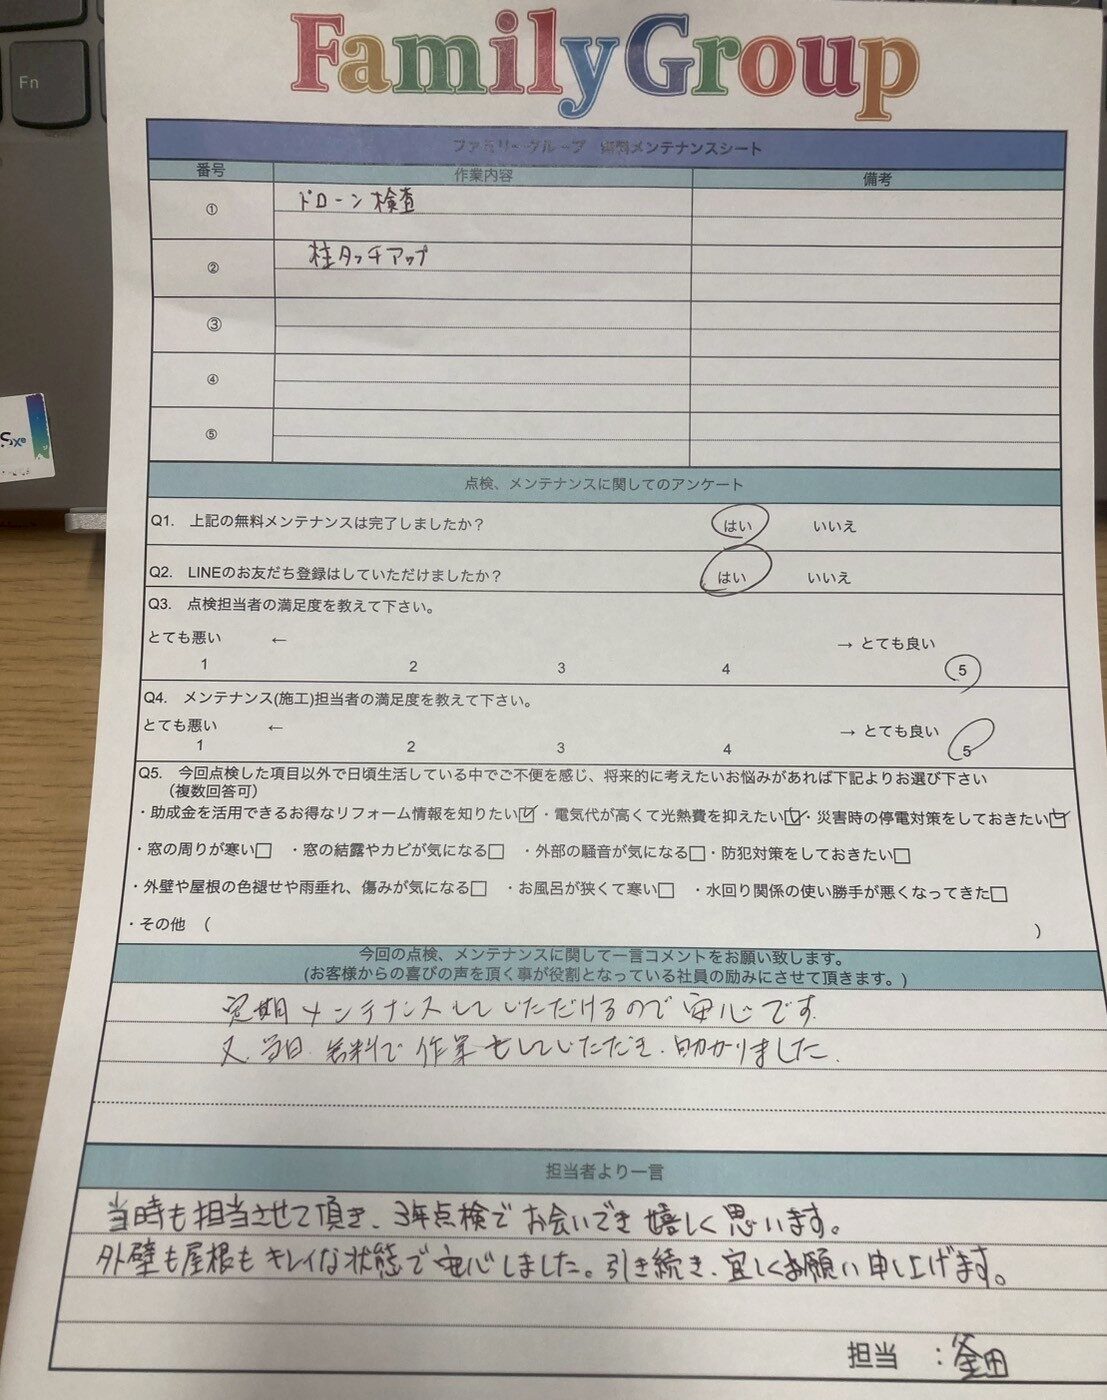 Fn
FamilyGroup
ファミリーグループ 無料メンテナンスシート
番号 作業内容 備考
① ドローン検査
② 柱タッチアップ
③
④
⑤
点検、メンテナンスに関してのアンケート
Q1. 上記の無料メンテナンスは完了しましたか？ はい いいえ
Q2. LINEのお友だち登録はしていただけましたか？ はい いいえ
Q3. 点検担当者の満足度を教えて下さい。
とても悪い ← → とても良い
1 2 3 4 5
Q4. メンテナンス(施工)担当者の満足度を教えて下さい。
とても悪い ← → とても良い
1 2 3 4 5
Q5. 今回点検した項目以外で日頃生活している中でご不便を感じ、将来的に考えたいお悩みがあれば下記よりお選び下さい
（複数回答可）
・助成金を活用できるお得なリフォーム情報を知りたい☑・電気代が高くて光熱費を抑えたい☑・災害時の停電対策をしておきたい☑
・窓の周りが寒い□ ・窓の結露やカビが気になる□ ・外部の騒音が気になる□・防犯対策をしておきたい□
・外壁や屋根の色褪せや雨垂れ、傷みが気になる□ ・お風呂が狭くて寒い□ ・水回り関係の使い勝手が悪くなってきた□
・その他 （ ）
今回の点検、メンテナンスに関して一言コメントをお願い致します。
(お客様からの喜びの声を頂く事が役割となっている社員の励みにさせて頂きます。)
定期メンテナンスしていただけるので安心です.
又、当日、無料で作業もしていただき、助かりました.
担当者より一言
当時も担当させて頂き、3年点検でお会いでき嬉しく思います。
外壁も屋根もキレイな状態で安心しました。引き続き、宜しくお願い申し上げます。
担当 ：釜田